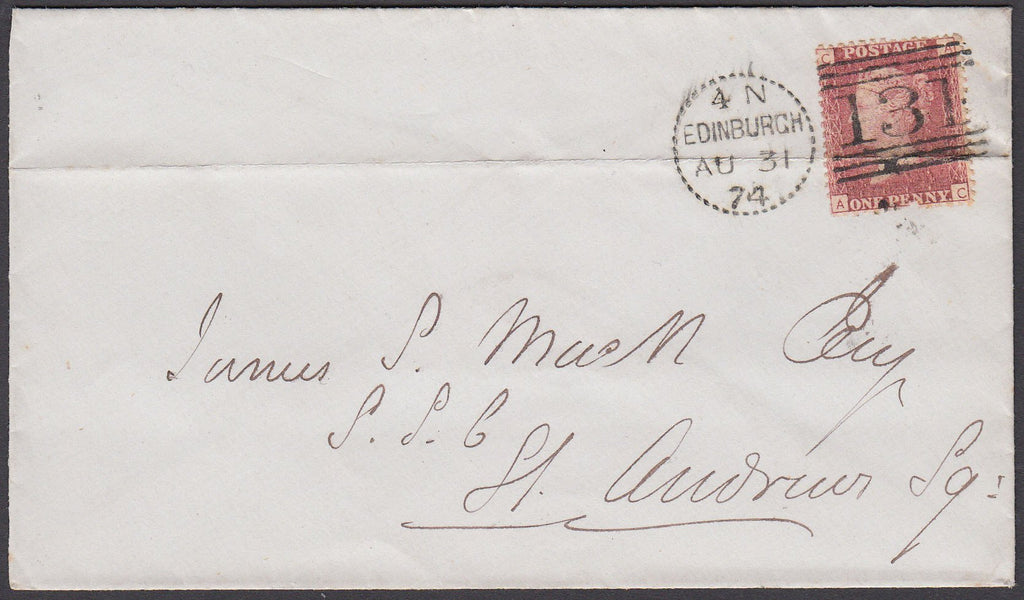 C POSTAGE A
131
A ONE PENNY C
4 N
EDINBURGH
AU 31
74
James S. Mack Esq
S.S.C
St. Andrews Sq: